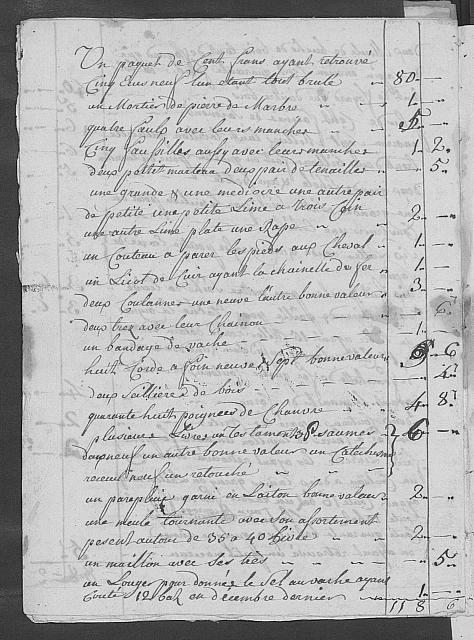 Un paquet de Cent frans ayant retrouvé
Cinq Ecus neuf l'un etant tout brulé " 80 - —
un Mortier de pierre de Marbre " 1 - —
quatre faulx avec leurs manches 5 - —
Cinq faussilles aussy avec leurs manches 1 - 2 -
deux petit marteau deux pair de tenailles " — 5 -
une grande & une mediocre une autre pair
de petite une petite Lime a trois Coin 2 - —
une autre Lime plate une Rape " "
un Couteau a parer les pieds aux Cheval 1 - —
un Licot de Cuir ayant la chainette de fer 1 - —
deux Coulannes une neuve l'autre bonne valeur 3 - —
deux trez avec leur Chainon — 6
un bandage de vache " " 1 - —
huit Corde a foin neuve & sept bonne valeur 6 - 6
deux sallière de bois — 4 -
quarante huit poignées de Chanvre 4 - 8
plusieurs Livres un Testament 3 psaumes 6 - —
deux neuf un autre bonne valeur un Catechisme
receuil neuf un retouché " " "
un paraplue garni en Laiton bonne valeur 2 - —
une meule tournante avec son assortement
pesent autour de 35 a 40 Livre " " 2 - —
un maillon avec ses tiés " " — 5 -
un Louger pour donnée le sel au vache ayans
Couté 12 batz en décembre dernier 1 - —
118 6